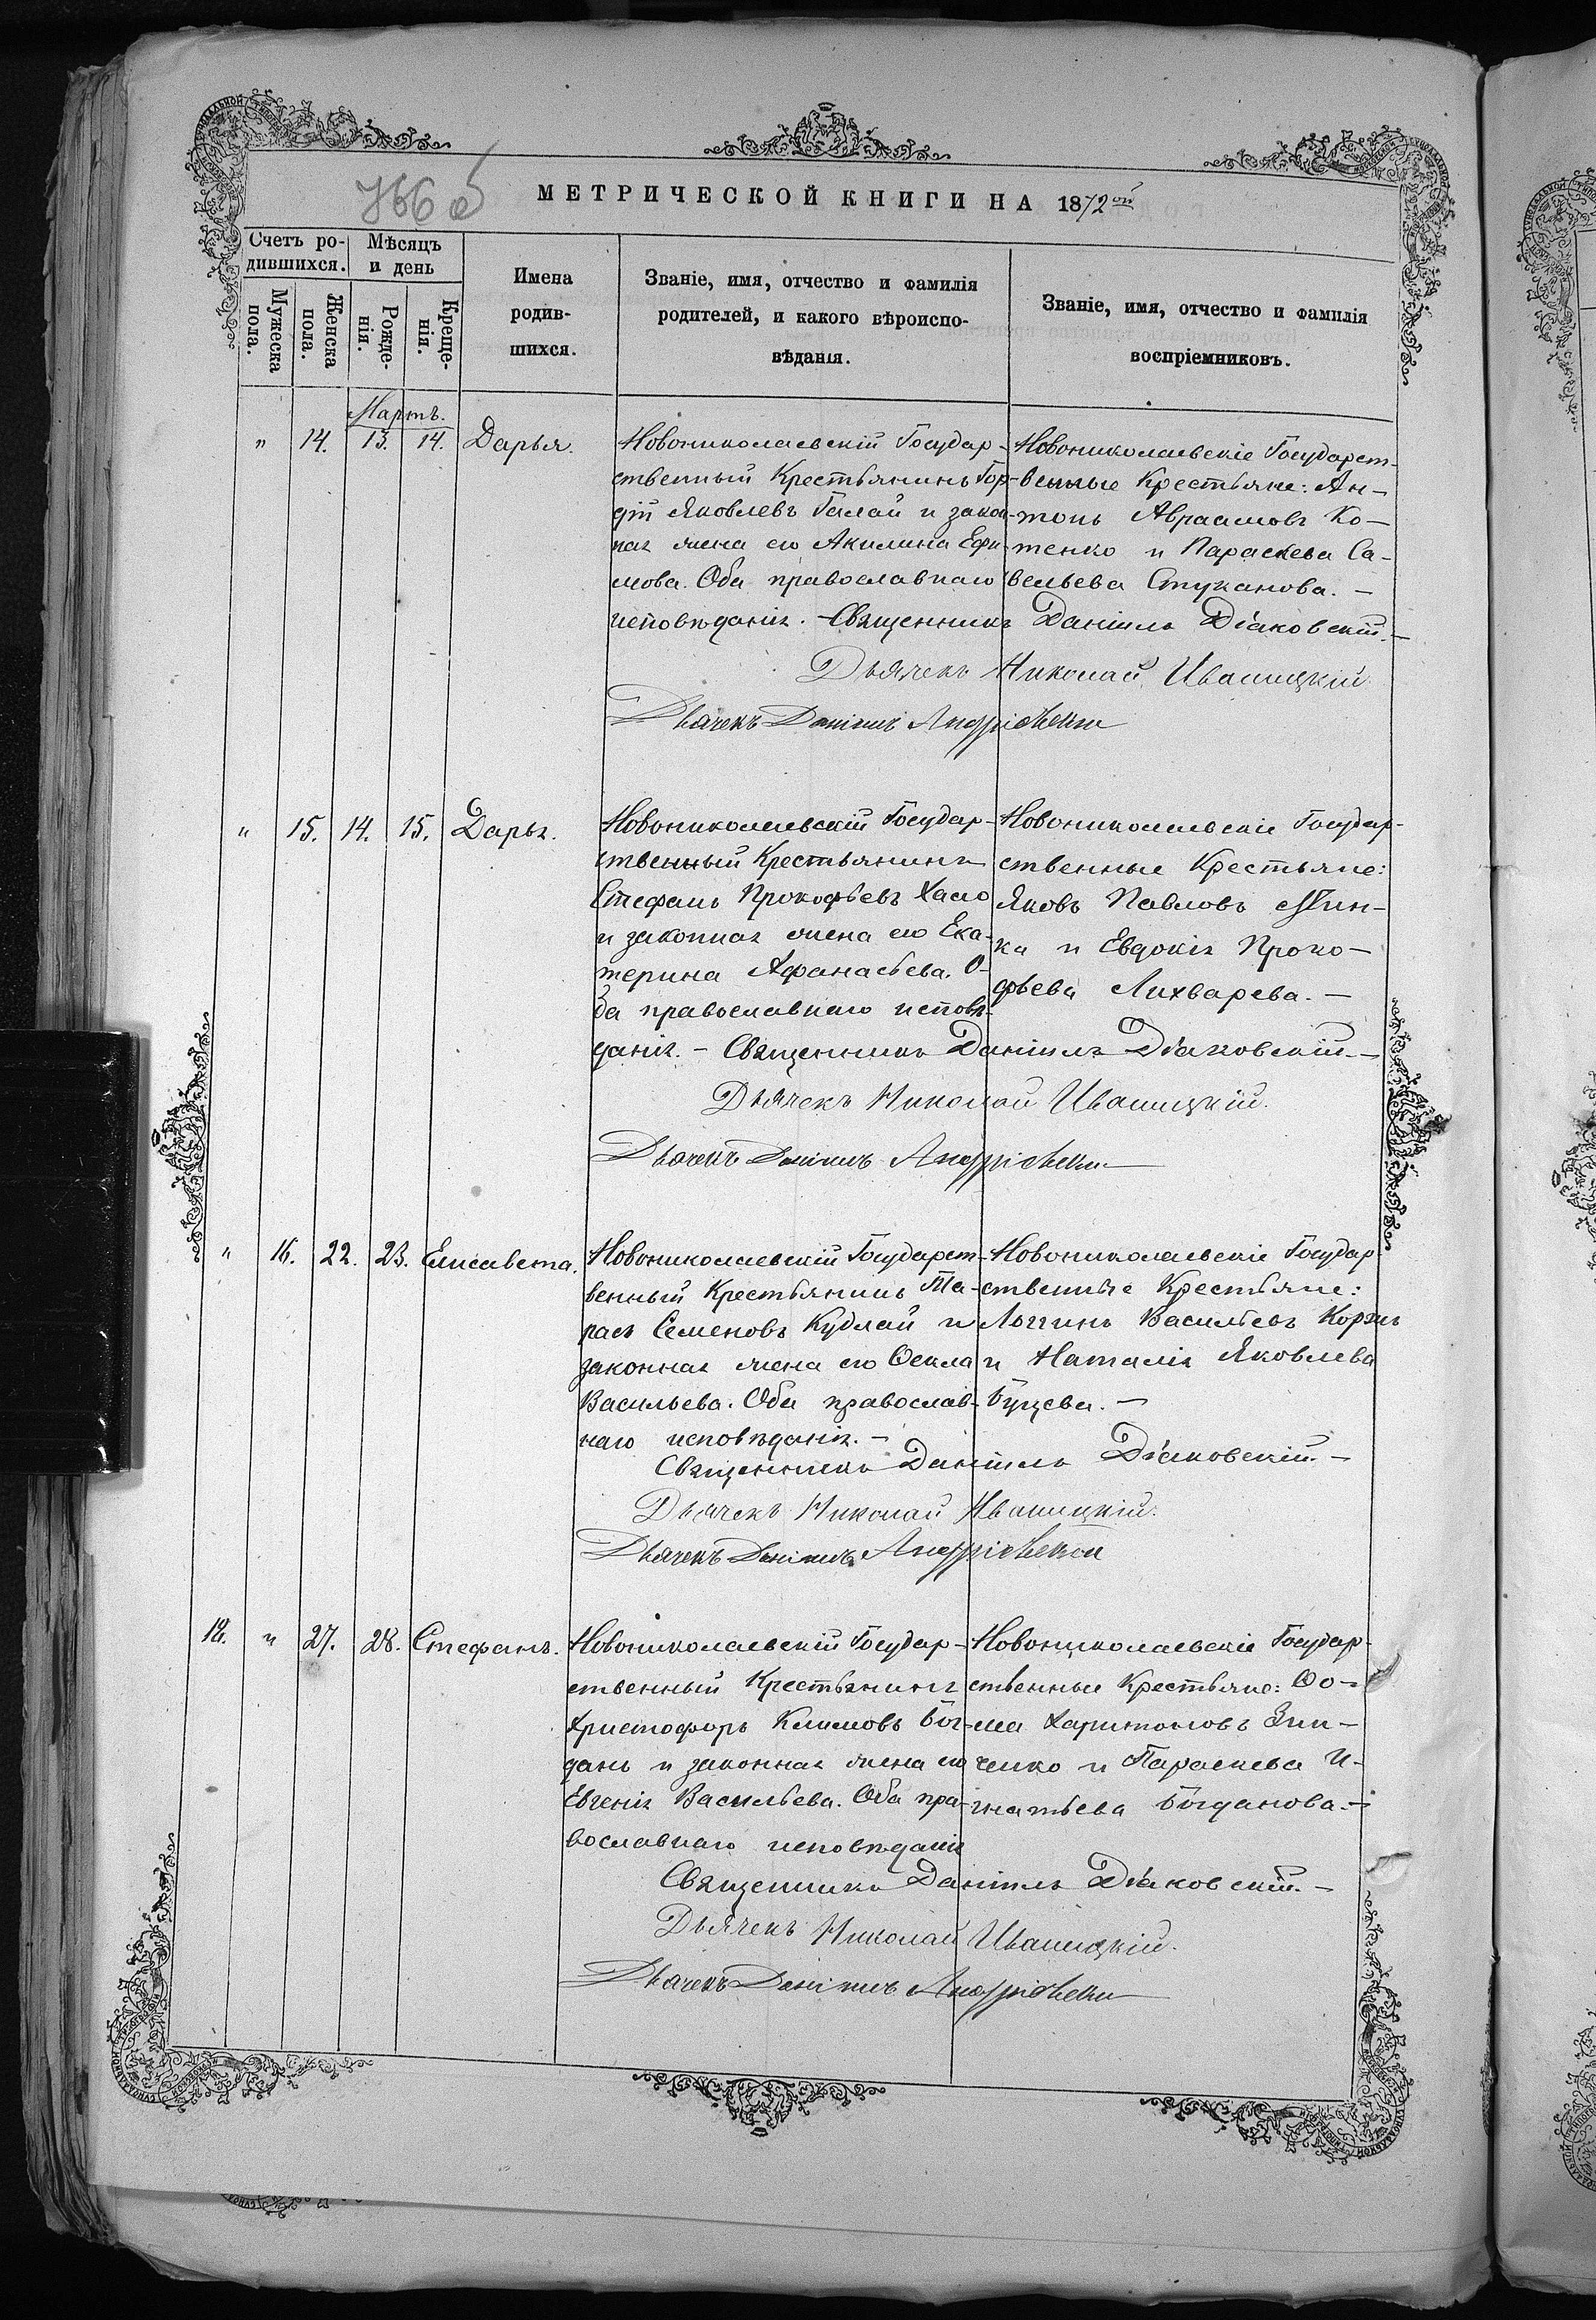 766 об
МЕТРИЧЕСКОЙ КНИГИ НА 1872ой
Счетъ ро-
дившихся.
Мѣсяцъ
и день
Мужеска пола.
Женска пола.
Рожде-
нія.
Креще-
нія.
Имена
родив-
шихся.
Званіе, имя, отчество и фамилія
родителей, и какого вѣроиспо-
вѣданія.
Званіе, имя, отчество и фамилія
воспріемниковъ.
Мартъ.
" 14. 13. 14. Дарья.
Новониколаевскій Государ-
ственный Крестьянинъ Гор-
дій Яковлевъ Галай и закон-
ная жена его Акилина Ефи-
мова. Оба православнаго
исповѣданія. –
Новониколаевскіе Государст-
венные Крестьяне: Ан-
тонъ Авраамовъ Ко-
тенко и Параскева Са-
вельева Стуканова. –
Священникъ Даніилъ Діаковскій. –
Дьячекъ Николай Иваницкій
Дьячекъ Даніилъ Андріевскій
" 15. 14. 15. Дарья.
Новониколаевскій Государ-
ственный Крестьянинъ
Стефанъ Прокофьевъ Хало
и законная жена его Ека-
терина Афанасьева. О-
ба православнаго исповѣ-
данія. –
Новониколаевскіе Государ-
ственные Крестьяне:
Яковъ Павловъ Мин-
ка и Евдокія Проко-
фьева Лихварева. –
Священникъ Даніилъ Діаковскій. –
Дьячекъ Николай Иваницкій.
Дьячекъ Даніилъ Андріевскій
" 16. 22. 23. Елисавета.
Новониколаевскій Государст-
венный Крестьянинъ Та-
расъ Семеновъ Кудлай и
законная жена его Ѳекла
Васильева. Оба православ-
наго исповѣданія. –
Новониколаевскіе Государ-
ственные Крестьяне:
Логгинъ Васильевъ Коржъ
и Наталія Яковлева
Буцева. –
Священникъ Даніилъ Діаковскій. –
Дьячекъ Николай Иваницкій.
Дьячекъ Даніилъ Андріевскій
18. " 27. 28. Стефанъ.
Новониколаевскій Государ-
ственный Крестьянинъ
Христофоръ Климовъ Бог-
данъ и законная жена его
Евгенія Васильева. Оба пра-
вославнаго исповѣданія
Новониколаевскіе Государ-
ственные Крестьяне: Ѳо-
ма Харитоновъ Зин-
ченко и Параскева И-
гнатьева Богданова. –
Священникъ Даніилъ Діаковскій. –
Дьячекъ Николай Иваницкій.
Дьячекъ Даніилъ Андріевскій